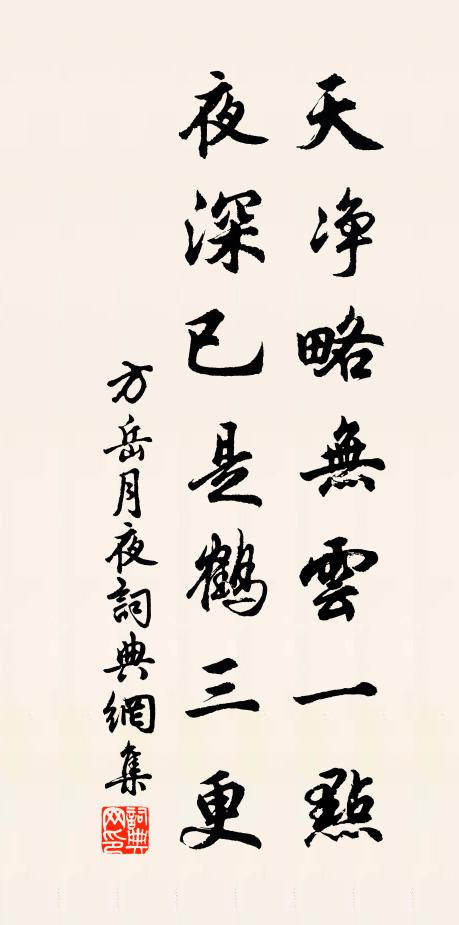 天净略無雲一點
夜深已是鶴三更
方岳月夜詞典網集
詞典网印